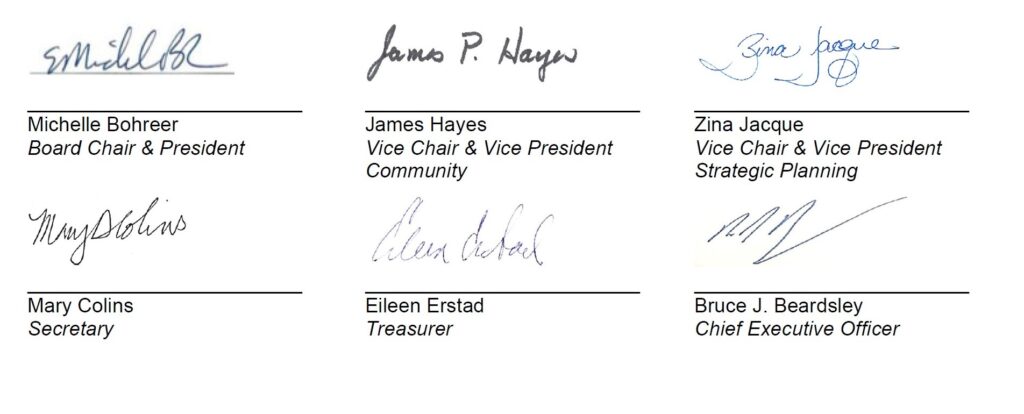 James P. Hayes
Zina Jacque
Michelle Bohreer
Board Chair & President
James Hayes
Vice Chair & Vice President
Community
Zina Jacque
Vice Chair & Vice President
Strategic Planning
Mary D Colins
Eileen Erstad
Mary Colins
Secretary
Eileen Erstad
Treasurer
Bruce J. Beardsley
Chief Executive Officer